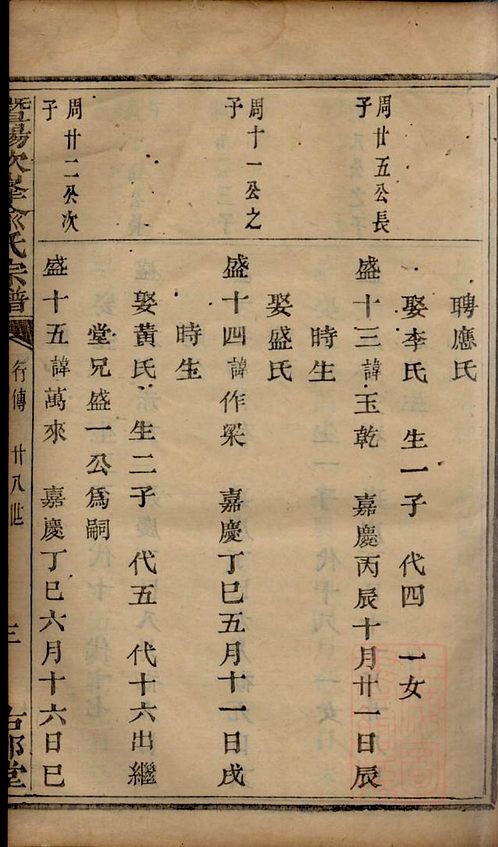 聘應氏
娶李氏 生一子 代四 一女
周廿五公長子
盛十三諱玉乾 嘉慶丙辰十月廿一日辰
時生
娶盛氏
周十一公之子
盛十四諱作梁 嘉慶丁巳五月十一日戌
時生
娶黃氏 生二子 代五 代十六出繼
堂兄盛一公爲嗣
周廿二公次子
盛十五諱萬來 嘉慶丁巳六月十六日巳
暨陽次峯俞氏宗譜
行傳 廿八世
三